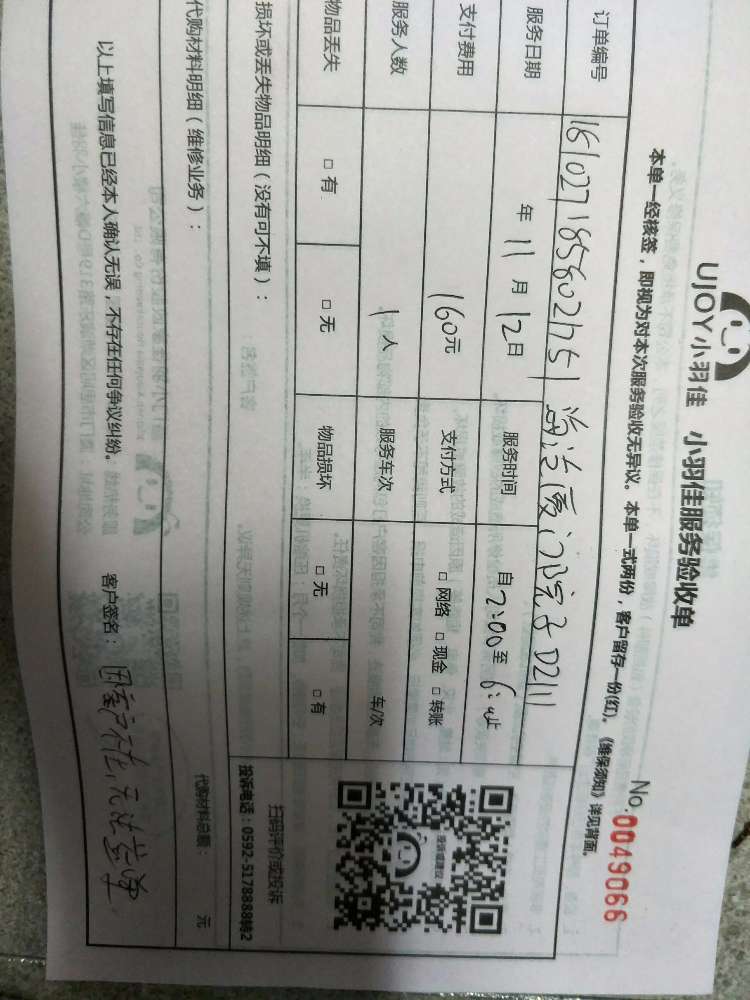 UJOY小羽佳 小羽佳服务验收单
No.0049066
本单一经核签，即视为对本次服务验收无异议。本单一式两份，客户留存一份(红)。《维保须知》详见背面。
订单编号 161027185802751 海沧厦门院子D2111
服务日期 年 11 月 12 日 服务时间 自 2:00 至 6: 止
支付费用 160元 支付方式 □ 网络 □ 现金 □ 转账
服务人数 1 人 服务车次 车/次
物品丢失 □ 有 □ 无 物品损坏 □ 无 □ 有
扫码评价或投诉
投诉电话：0592-5178888转2
投诉或建议
损坏或丢失物品明细（没有可不填）：
代购材料明细（维修业务）：
代购材料总额： 元
以上填写信息已经本人确认无误，不存在任何争议纠纷。 客户签名： 因客户不在，无法签单